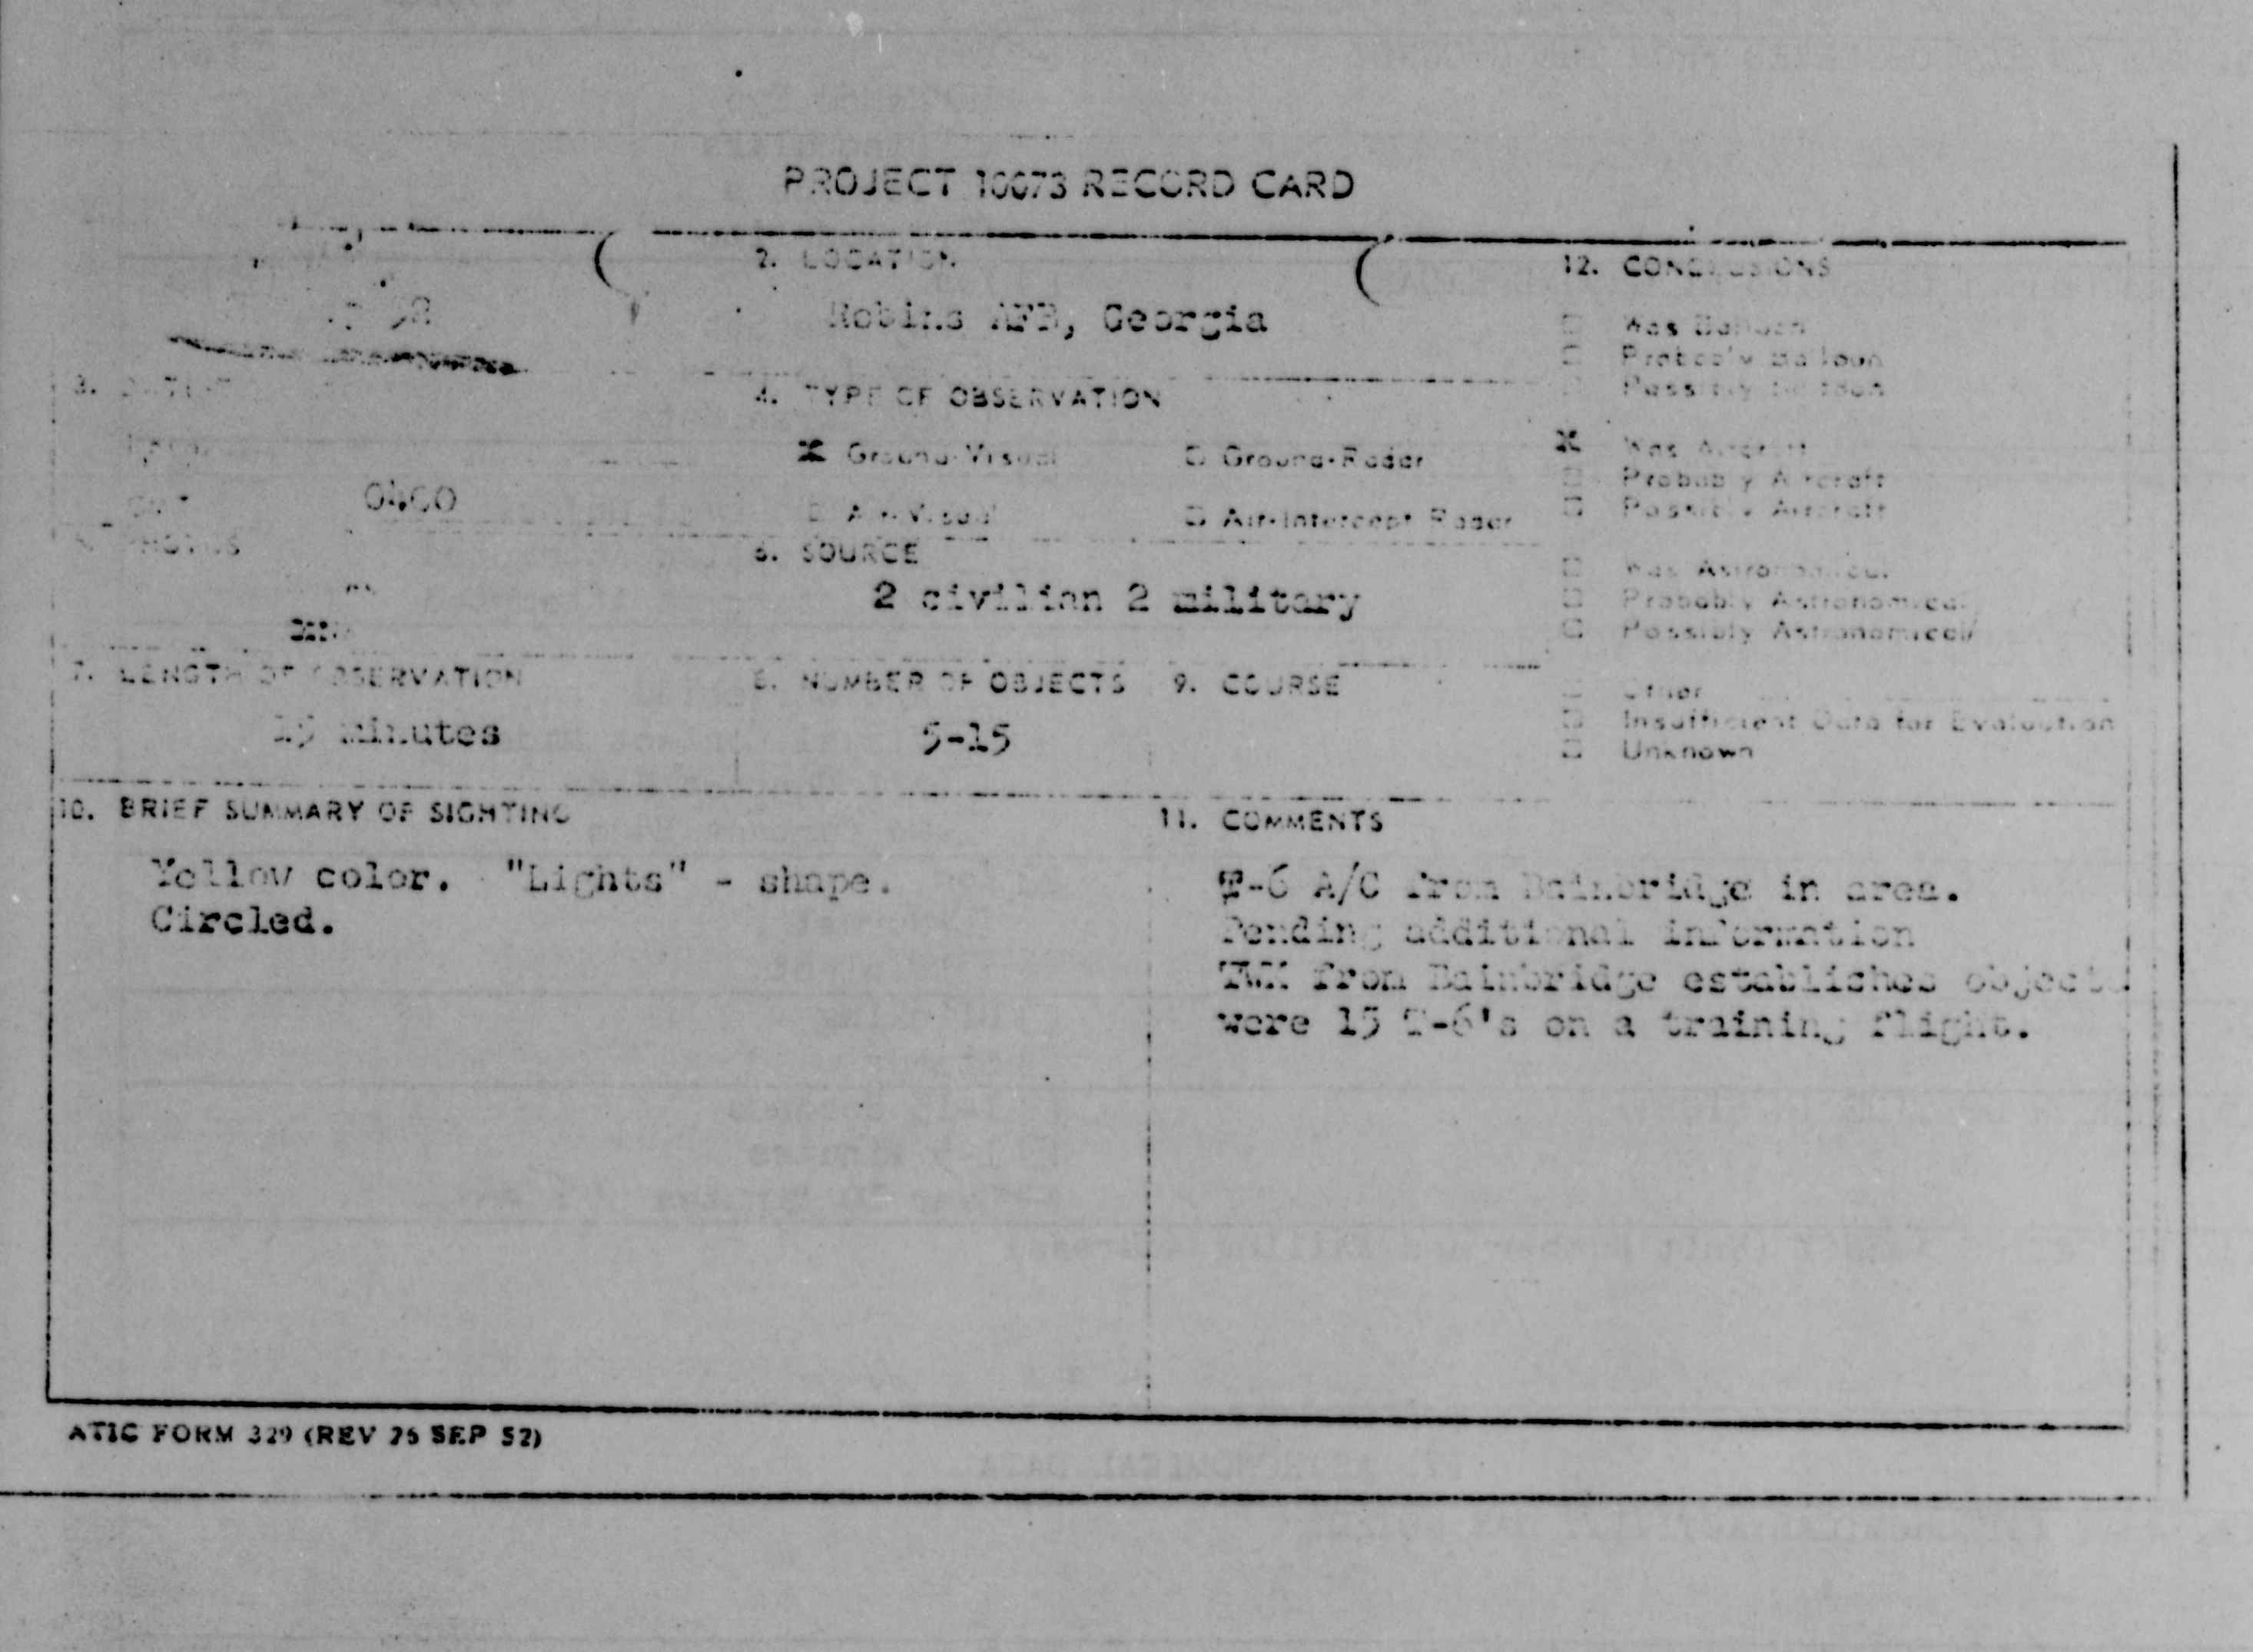 PROJECT 10073 RECORD CARD
2. LOCATION
Robins AFB, Georgia
12. CONCLUSIONS
Was Balloon
Probably Balloon
Possibly Balloon
Was Aircraft
Probably Aircraft
Possibly Aircraft
Was Astronomical
Probably Astronomical
Possibly Astronomical
Other
Insufficient Data for Evaluation
Unknown
3.
0400
4. TYPE OF OBSERVATION
Ground-Visual
Ground-Radar
Air-Visual
Air-Intercept Radar
PHOTOS
6. SOURCE
2 civilian 2 military
7. LENGTH OF OBSERVATION
15 minutes
8. NUMBER OF OBJECTS
5-15
9. COURSE
10. BRIEF SUMMARY OF SIGHTING
Yellow color. "Lights" - shape.
Circled.
11. COMMENTS
T-6 A/C from Bainbridge in area.
Pending additional information
TWX from Bainbridge establishes objects
were 15 T-6's on a training flight.
ATIC FORM 329 (REV 26 SEP 52)